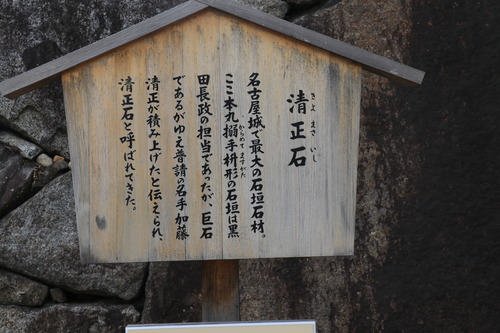 きよ まさ いし
清正石
名古屋城で最大の石垣石材。
からめて ますがた
ここ本丸搦手枡形の石垣は黒
田長政の担当であったが、巨石
であるがゆえ普請の名手加藤
清正が積み上げたと伝えられ、
清正石と呼ばれてきた。